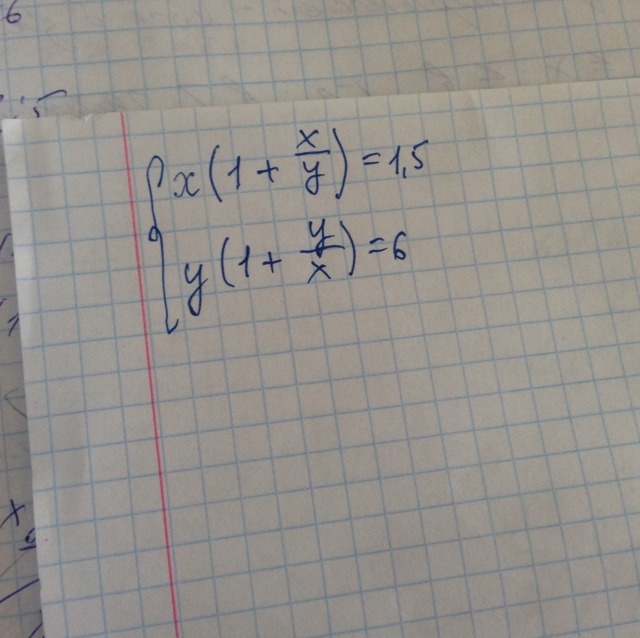 6
x(1 + x/y) = 1,5
y(1 + y/x) = 6
x